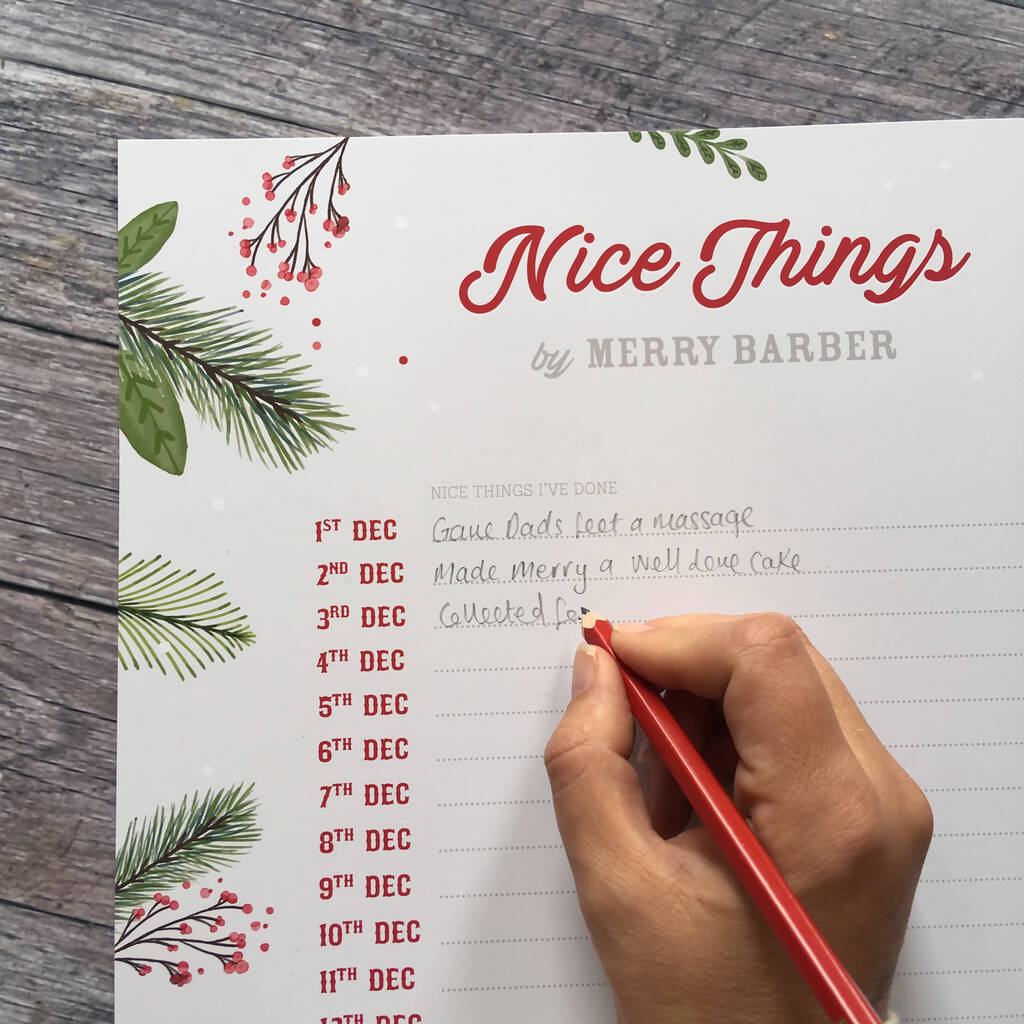 Nice Things
by MERRY BARBER
NICE THINGS I'VE DONE
1ST DEC Gave Dads feet a massage
2ND DEC Made Merry a well done cake
3RD DEC Collected
4TH DEC
5TH DEC
6TH DEC
7TH DEC
8TH DEC
9TH DEC
10TH DEC
11TH DEC
12TH DEC